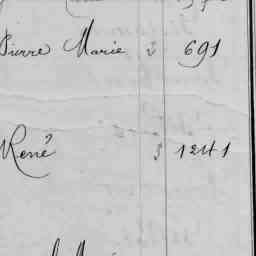 Pierre Marie 2 691
René 3 1241